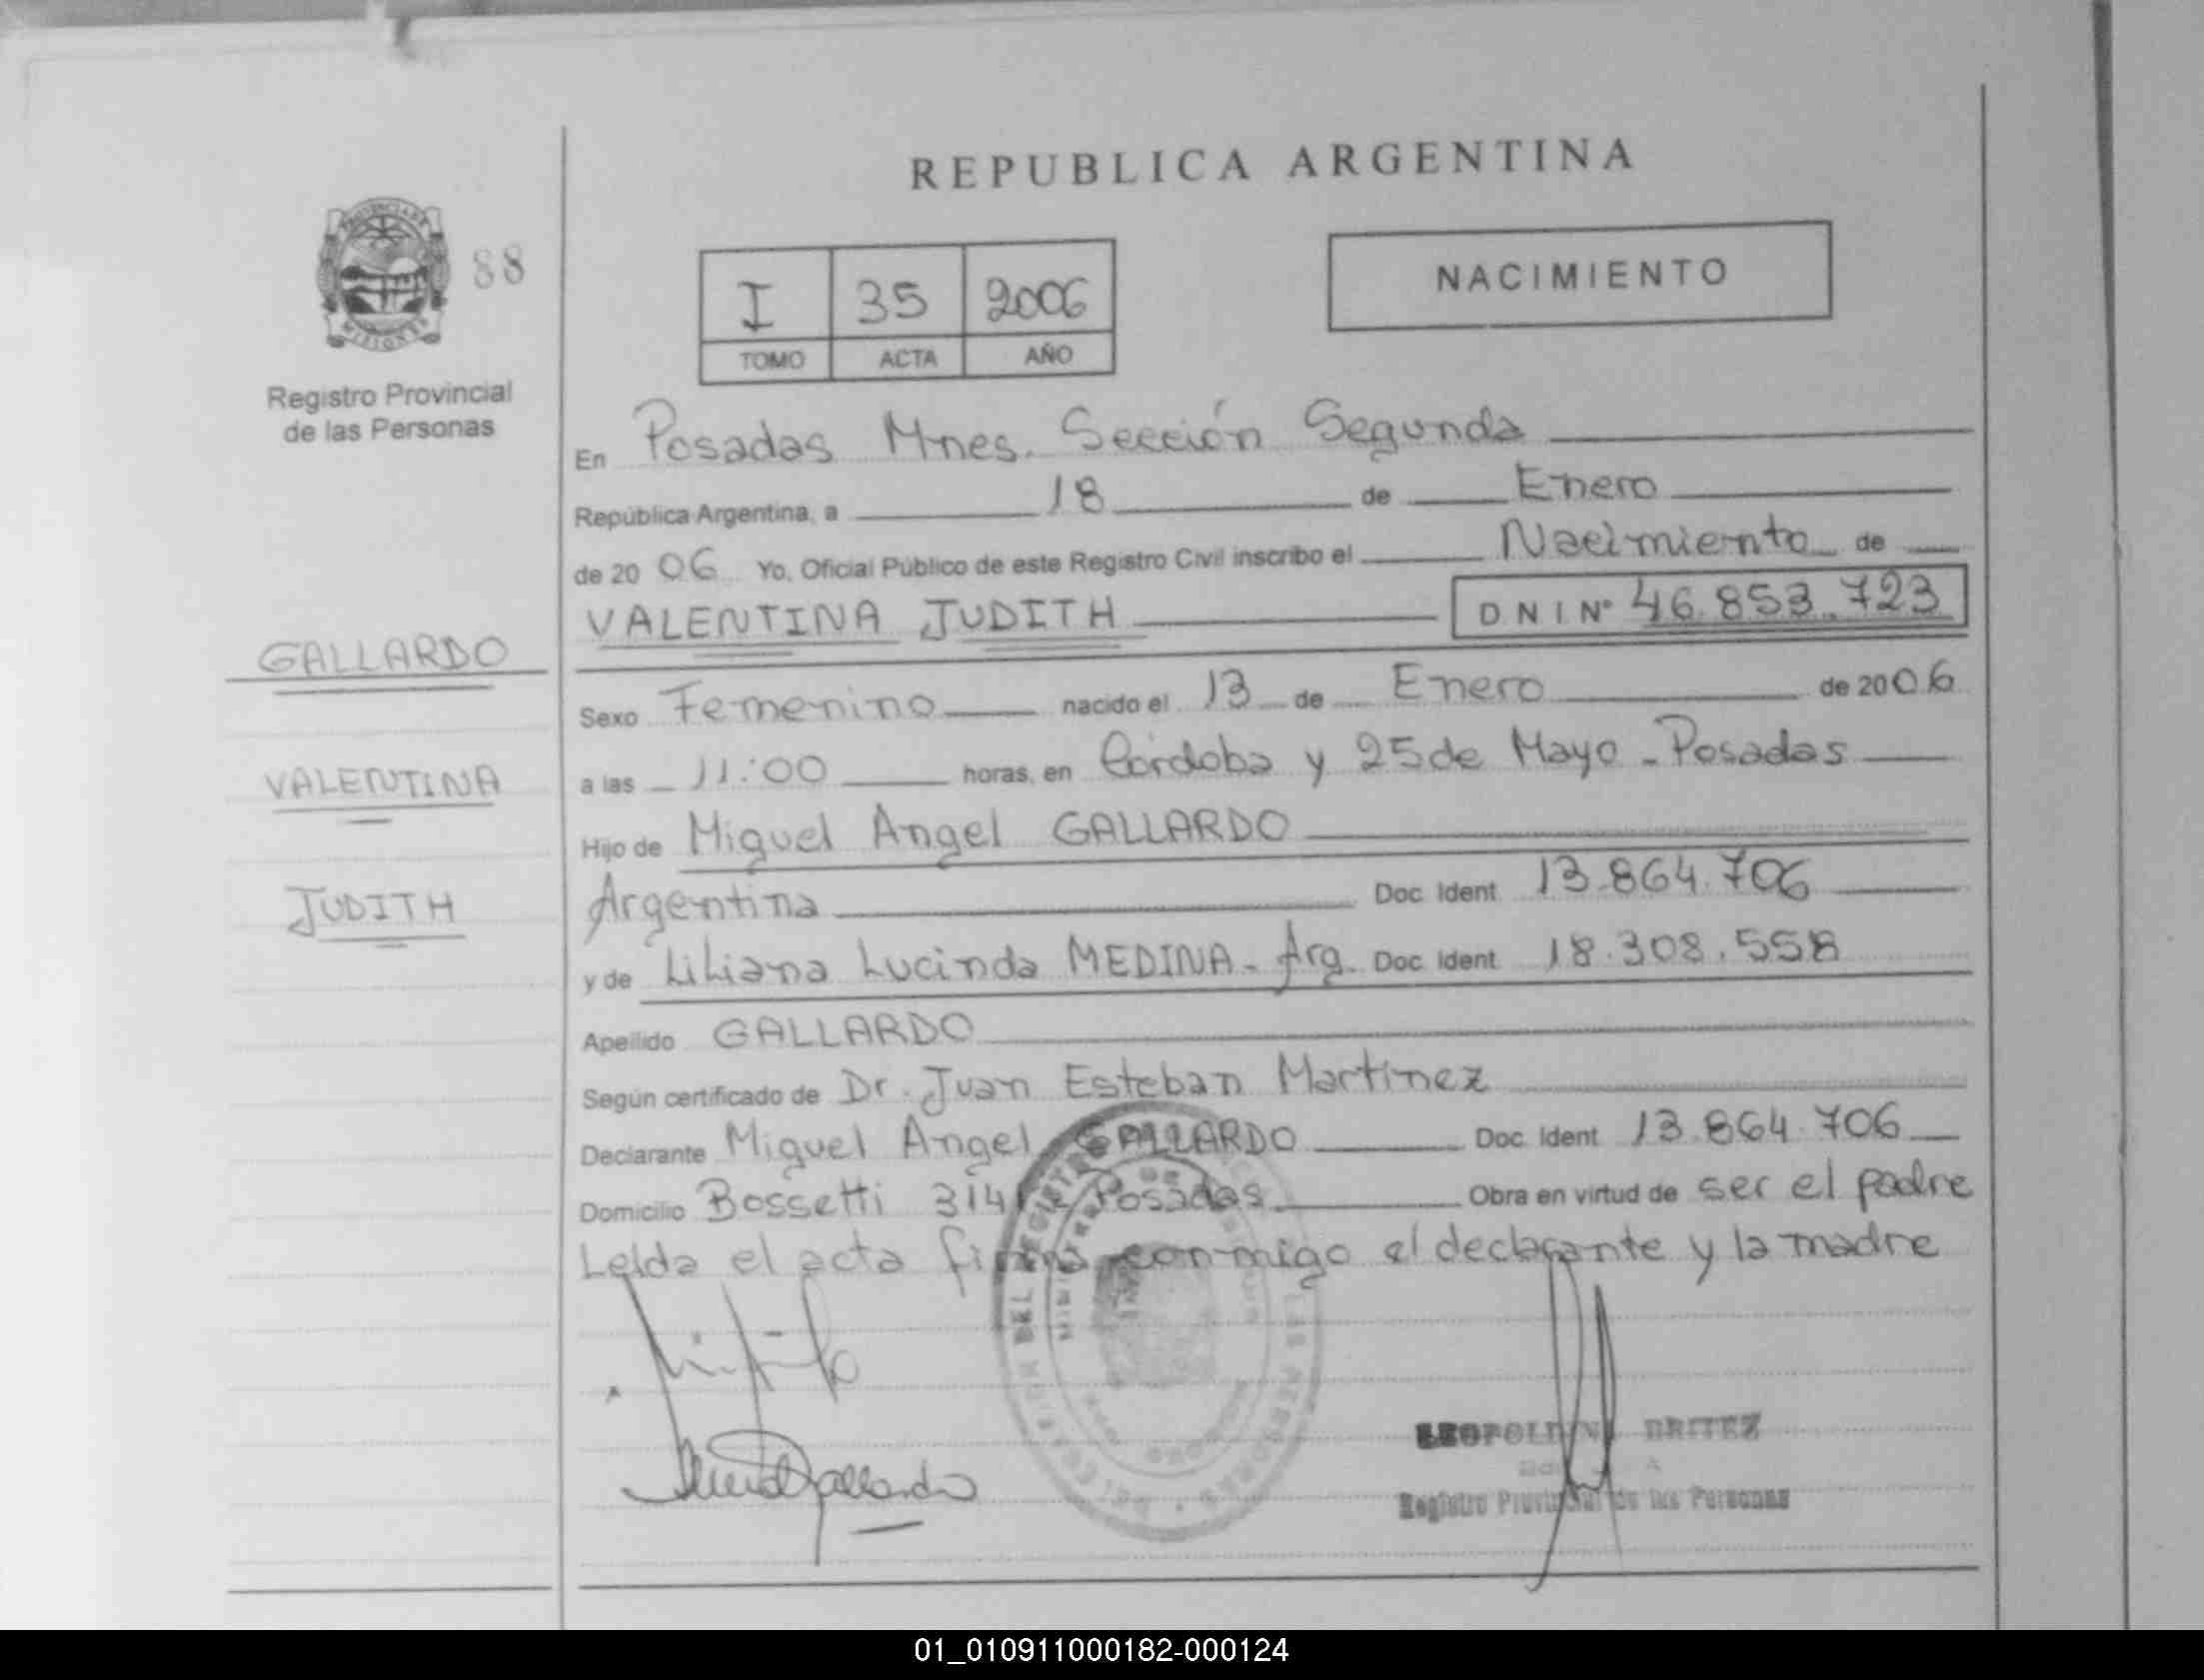 REPUBLICA ARGENTINA
88
I 35 2006
TOMO ACTA AÑO
NACIMIENTO
Registro Provincial
de las Personas
En Posadas Mnes. Sección Segunda
República Argentina, a 18 de Enero
de 2006 Yo, Oficial Público de este Registro Civil inscribo el Nacimiento de
VALENTINA JUDITH DNI Nº 46.853.723
GALLARDO
VALENTINA
JUDITH
Sexo Femenino nacido el 13 de Enero de 2006
a las 11:00 horas, en Córdoba y 25 de Mayo - Posadas
Hijo de Miguel Angel GALLARDO
Argentina Doc. Ident. 13.864.706
y de Liliana Lucinda MEDINA - Arg. Doc. Ident. 18.308.558
Apellido GALLARDO
Según certificado de Dr. Juan Esteban Martinez
Declarante Miguel Angel GALLARDO Doc. Ident. 13.864.706
Domicilio Bossetti Posadas Obra en virtud de ser el padre
Leída el acta firma conmigo el declarante y la madre
BRITEZ
Registro Provincial de las Personas
01_010911000182-000124